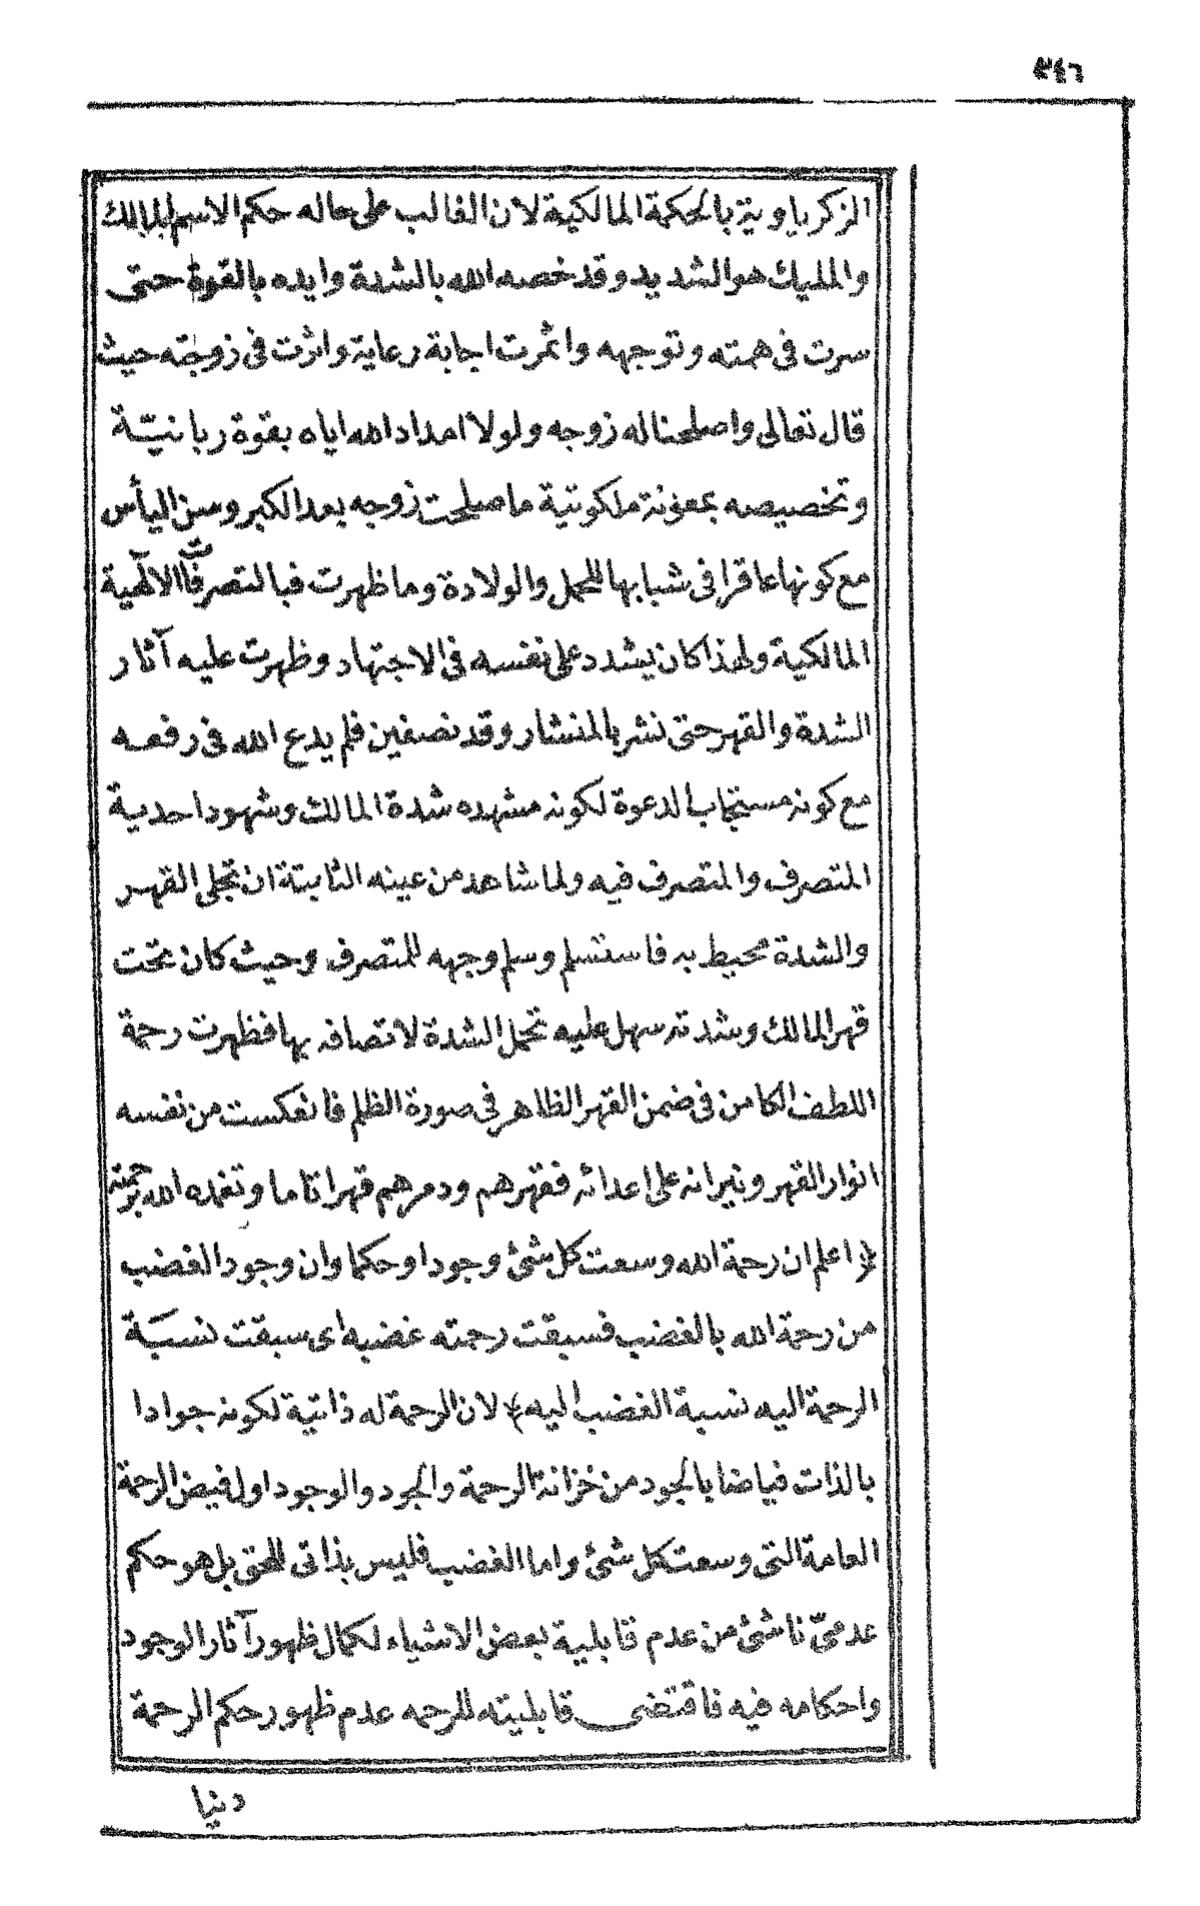 ٣٤٦
الزكرياوية بالحكمة المالكية لان الغالب على حاله حكم الاسم المالك
والمليك هو الشديد وقد خصه الله بالشدة وايده بالقوة حتى
سرت فى همته وتوجهه واثمرت اجابة رعاية واثرت فى زوجته حيث
قال تعالى واصلحنا له زوجه ولولا امداد الله اياه بقوة ربانيّة
وتخصيصه بمعونة ملكوتية ما صلحت زوجه بعد الكبر وسن اليأس
مع كونها عاقرا فى شبابها للحمل والولادة وما ظهرت فبالتصرفات الالٓهية
المالكية ولهذا كان يشدد على نفسه فى الاجتهاد وظهرت عليه آثار
الشدة والقهر حتى نشر بالمنشار وقد نصفين فلم يدع الله فى رفعه
مع كونه مستجاب الدعوة لكونه مشهده شدة المالك وشهود احدية
المتصرف والمتصرف فيه ولما شاهد من عينه الثابتة ان تجلى القهر
والشدة محيط به فاستسلم وسلم وجهه للمتصرف وحيث كان تحت
قهر المالك وشدته سهل عليه تحمل الشدة لاتصافه بها فظهرت رحمة
اللطف الكامن فى ضمن القهر الظاهر فى صورة الظلم فانعكست من نفسه
انوار القهر ونيرانه على اعدائه فقهرهم ودمرهم قهرا تاما وتغمده الله برحمته
﴿ اعلم ان رحمة الله وسعت كل شئ وجودا وحكما وان وجود الغضب
من رحمة الله بالغضب فسبقت رحمته غضبه اى سبقت نسبَة
الرحمة اليه نسبة الغضب اليه ﴾ لان الرحمة له ذاتية لكونه جوادا
بالذات فياضا بالجود من خزانة الرحمة والجود والوجود اول فيض الرحمة
العامة التى وسعت كل شئ واما الغضب فليس بذاتى للحق بل هو حكم
عدمىّ ناشئ من عدم قابلية بعض الاشياء لكمال ظهور آثار الوجود
واحكامه فيه فاقتضى قابليته للرحمه عدم ظهور حكم الرحمة
دنيا